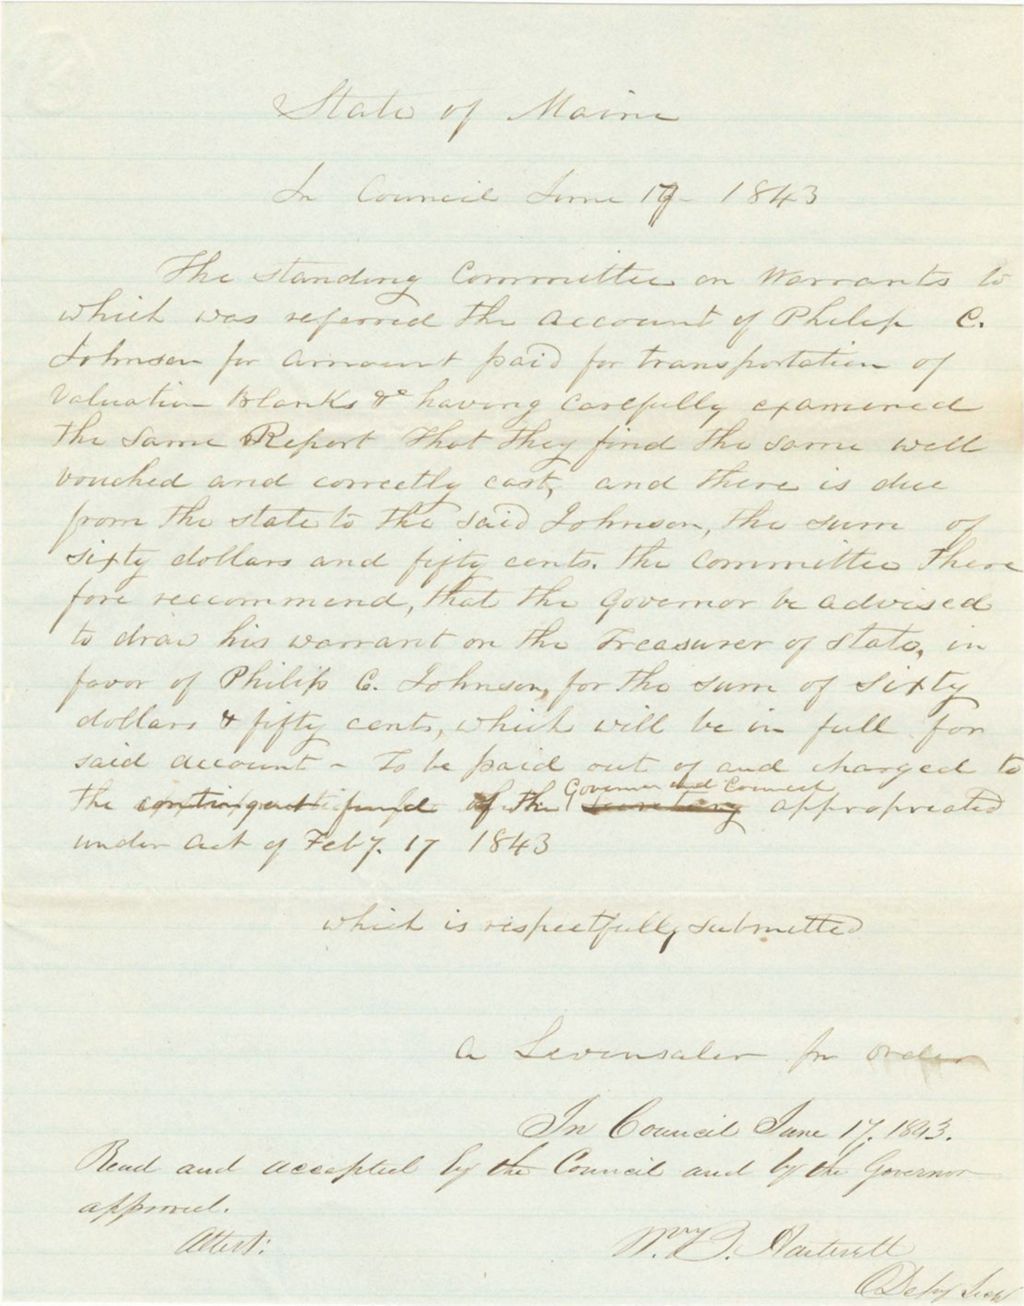 State of Maine
In Council June 17 1843
The standing Committee on Warrants to
which was referred the account of Philip C.
Johnson for amount paid for transportation of
Valuation Blanks &c having carefully examined
the same Report That they find the same well
vouched and correctly cast, and there is due
from the state to the said Johnson, the sum of
sixty dollars and fifty cents. The Committee there
fore reccommend, that the Governor be advised
to draw his warrant on the Treasurer of State, in
favor of Philip C. Johnson, for the sum of sixty
dollars & fifty cents, which will be in full for
said account - To be paid out of and charged to
Governor and Council
the contingent fund of the secretary appropreated
under act of Feby. 17 1843
which is respectfully submitted
A Levensaler per order
In Council June 17, 1843.
Read and accepted by the Council and by the Governor
approved.
Attest:
Wm. B. Hartwell
Depy Secy